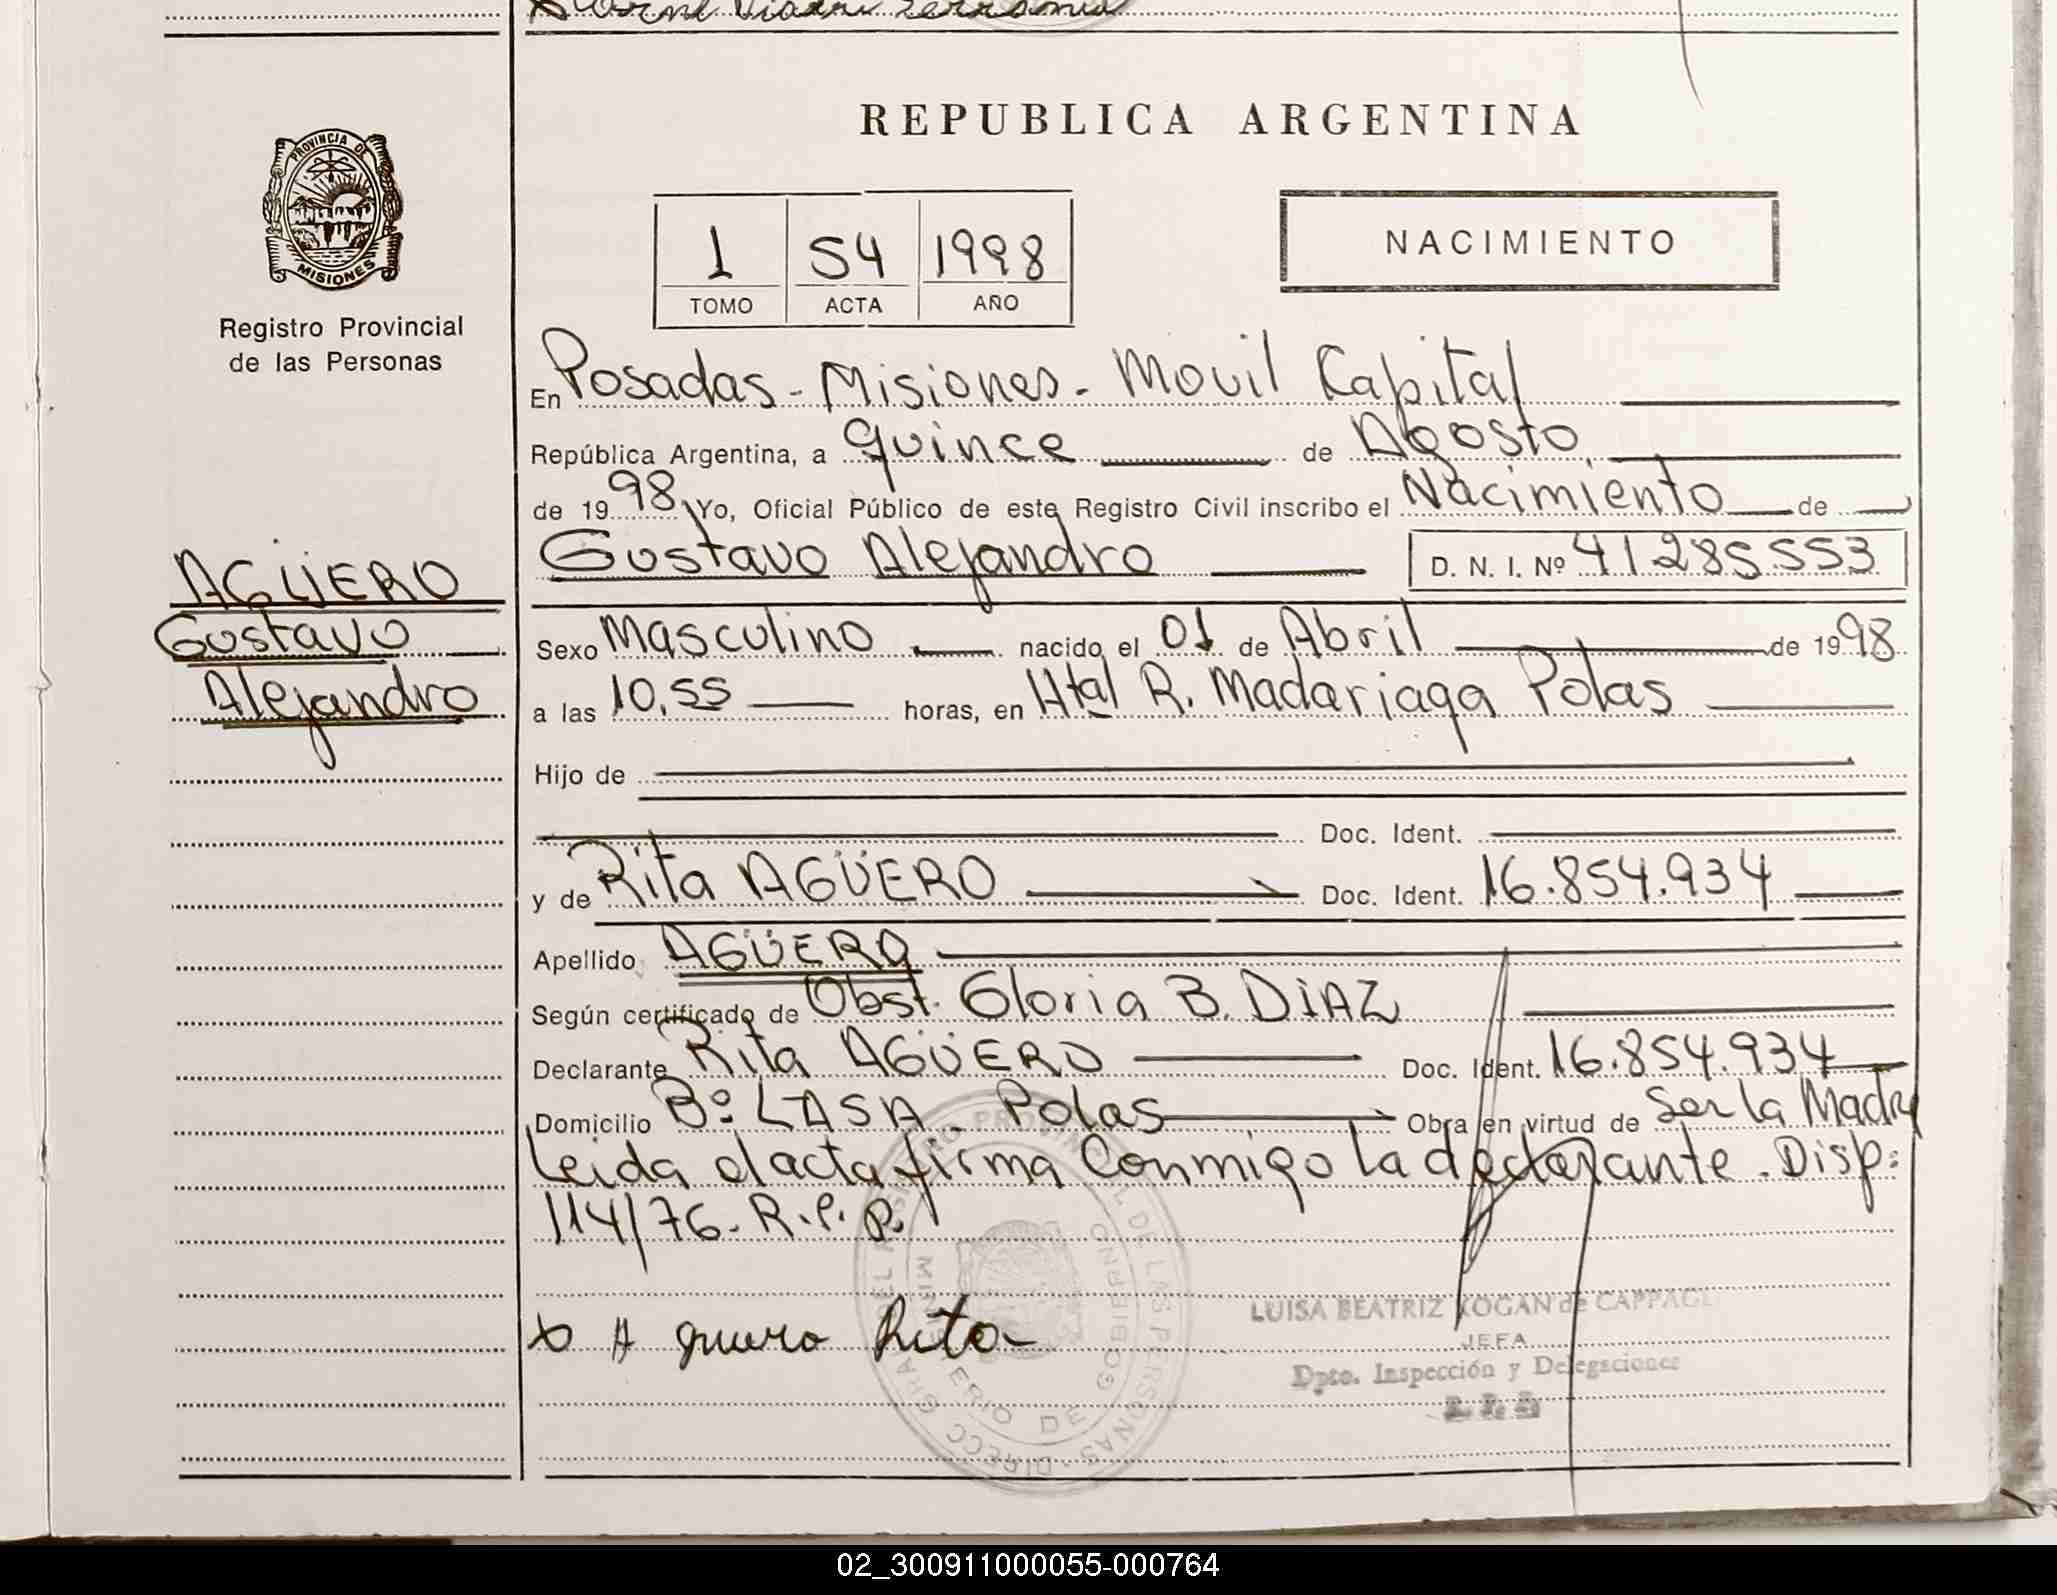 REPUBLICA ARGENTINA
PROVINCIA DE
MISIONES
Registro Provincial
de las Personas
1 54 1998
TOMO ACTA AÑO
NACIMIENTO
En Posadas - Misiones - Movil Capital
República Argentina, a quince de Agosto
de 1998 Yo, Oficial Público de este Registro Civil inscribo el Nacimiento de
AGÜERO
Gustavo
Alejandro
Gustavo Alejandro D. N. I. Nº 41.285.553
Sexo Masculino nacido el 01 de Abril de 1998
a las 10,55 horas, en Htal R. Madariaga Pdas
Hijo de
Doc. Ident.
y de Rita AGÜERO Doc. Ident. 16.854.934
Apellido AGÜERO
Según certificado de Obst. Gloria B. DiAZ
Declarante Rita AGÜERO Doc. Ident. 16.854.934
Domicilio Bº LASA - Pdas Obra en virtud de Ser la Madre
Leida el acta firma Conmigo la declarante. Disp:
114/76- R.P.P.
x Aguero Rita
LUISA BEATRIZ KOGAN de CAPPAGLI
JEFA
Dpto. Inspección y Delegaciones
DIRECC GRAL DEL REGISTRO PROVINCIAL DE LAS PERSONAS
MINISTERIO DE GOBIERNO
02_300911000055-000764